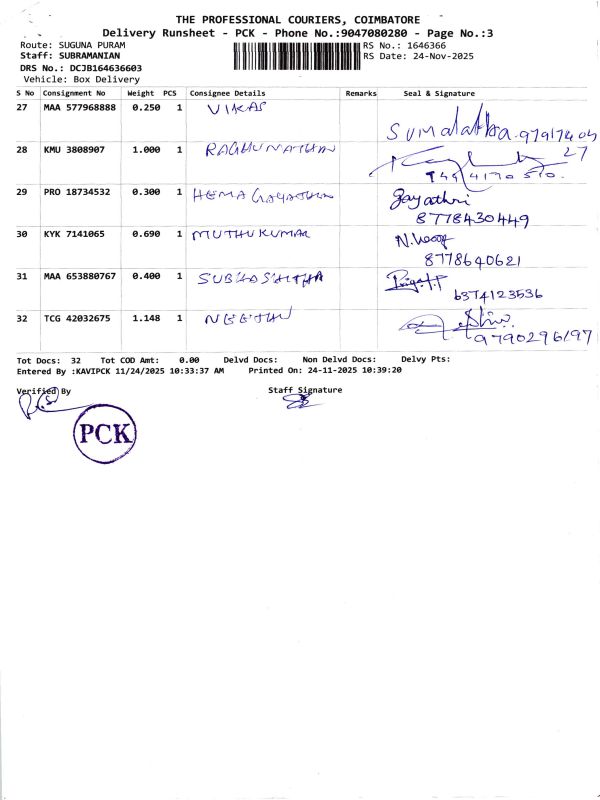 THE PROFESSIONAL COURIERS, COIMBATORE
Delivery Runsheet - PCK - Phone No.:9047080280 - Page No.:3
Route: SUGUNA PURAM RS No.: 1646366
Staff: SUBRAMANIAN RS Date: 24-Nov-2025
DRS No.: DCJB164636603
Vehicle: Box Delivery
S No Consignment No Weight PCS Consignee Details Remarks Seal & Signature
27 MAA 577968888 0.250 1 VIKAS
Sumalatha 97917409
27
28 KMU 3808907 1.000 1 RAGHUNATHAN
29 PRO 18734532 0.300 1 HEMA GAYATHRI Gayathri
8778430449
30 KYK 7141065 0.690 1 MUTHUKUMAR
8778640621
31 MAA 653880767 0.400 1
6374123536
32 TCG 42032675 1.148 1 NEETHU
9790296197
Tot Docs: 32 Tot COD Amt: 0.00 Delvd Docs: Non Delvd Docs: Delvy Pts:
Entered By :KAVIPCK 11/24/2025 10:33:37 AM Printed On: 24-11-2025 10:39:20
Verified By Staff Signature
PCK